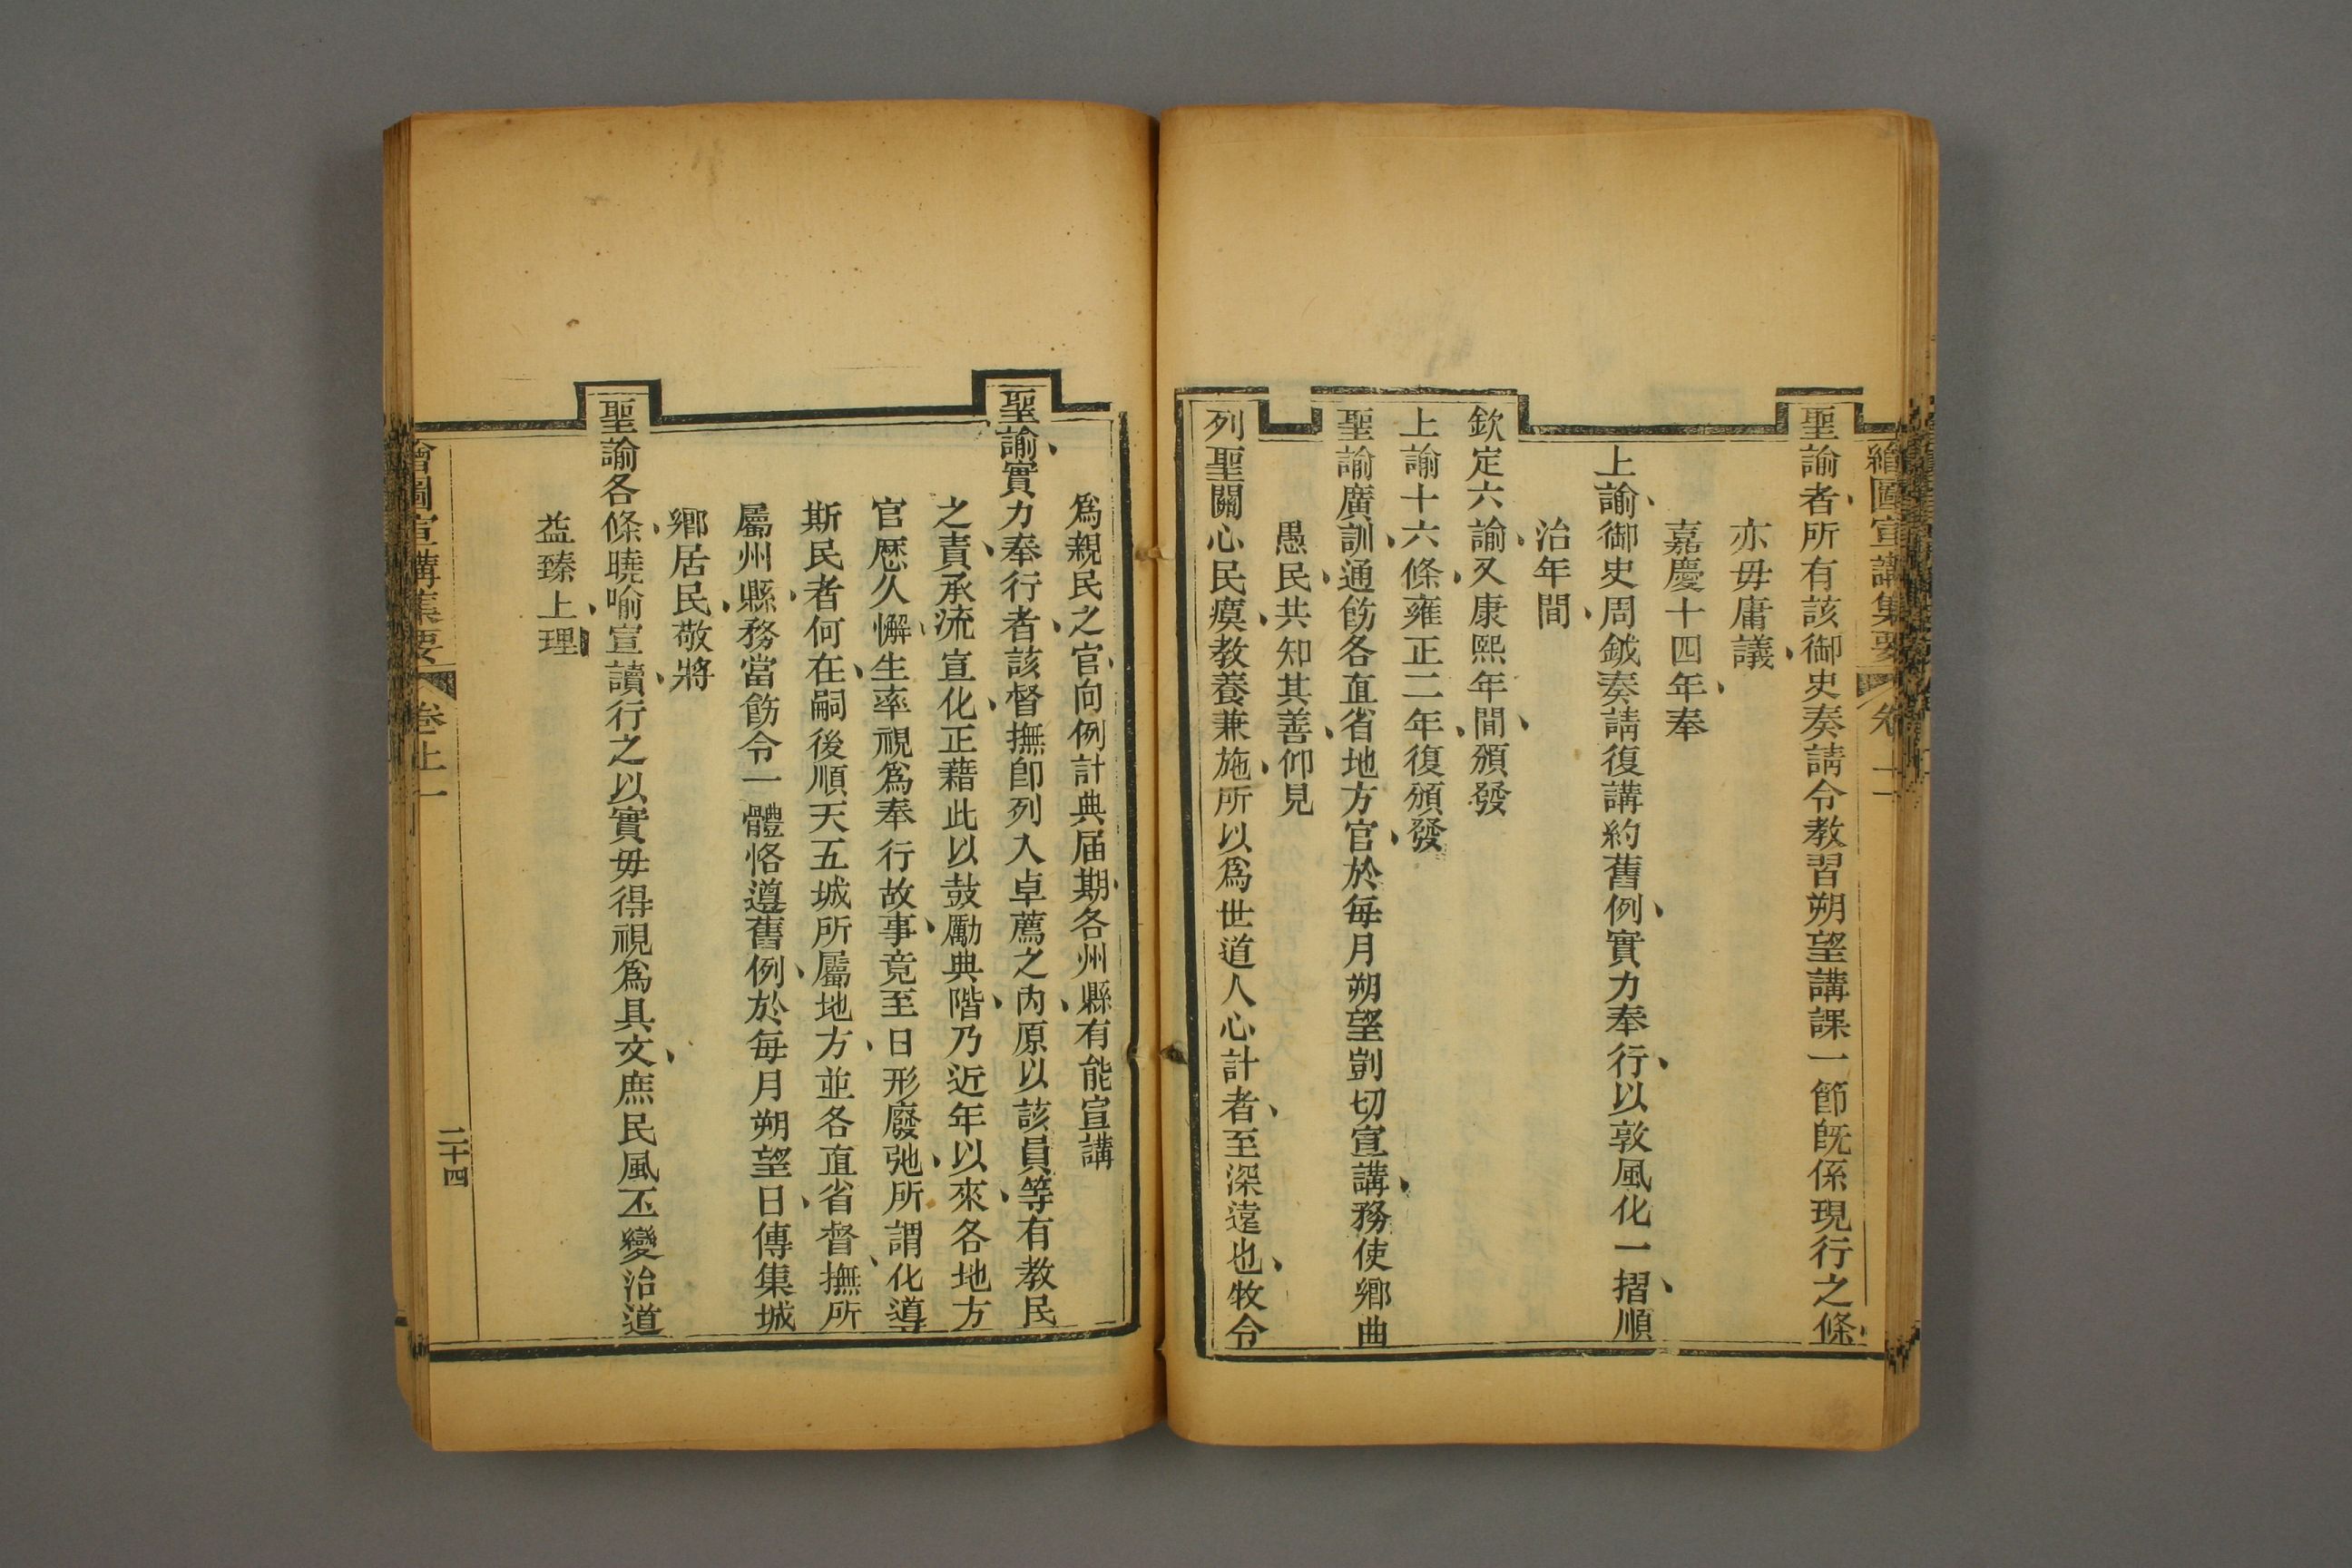 繪圖宣講集要 卷
聖諭者、所有該御史奏請令教習朔望講課一節旣係現行之條、
亦毋庸議、
嘉慶十四年、奉
上諭、御史周鉞奏請復講約舊例、實力奉行、以敦風化一摺、順
治年間、
欽定六諭、又康熙年間、頒發
上諭十六條、雍正二年、復頒發
聖諭廣訓、通飭各直省地方官、於每月朔望剴切宣講、務使鄉曲
愚民、共知其善、仰見
列聖關心民瘼、教養兼施、所以爲世道人心計者、至深遠也、牧令
爲親民之官、向例計典届期、各州縣有能宣講
聖諭、實力奉行者、該督撫卽列入卓薦之內、原以該員等有教民
之責、承流宣化、正藉此以鼓勵典階、乃近年以來、各地方
官歷久懈生、率視爲奉行故事、竟至日形廢弛、所謂化導
斯民者何在、嗣後順天五城所屬地方、並各直省督撫、所
屬州縣、務當飭令一體恪遵舊例、於每月朔望日、傳集城
鄉居民、敬將
聖諭各條、曉喻宣讀、行之以實毋得視爲具文、庶民風丕變治道
益臻上理
繪圖宣講集要 卷上一 二十四